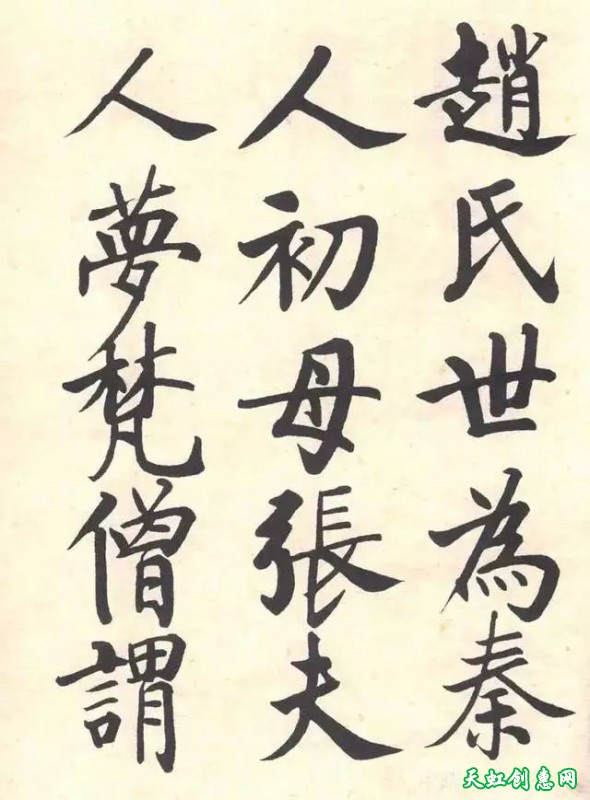 趙氏世為秦
人初母張夫
人夢梵僧謂
天虹创惠网